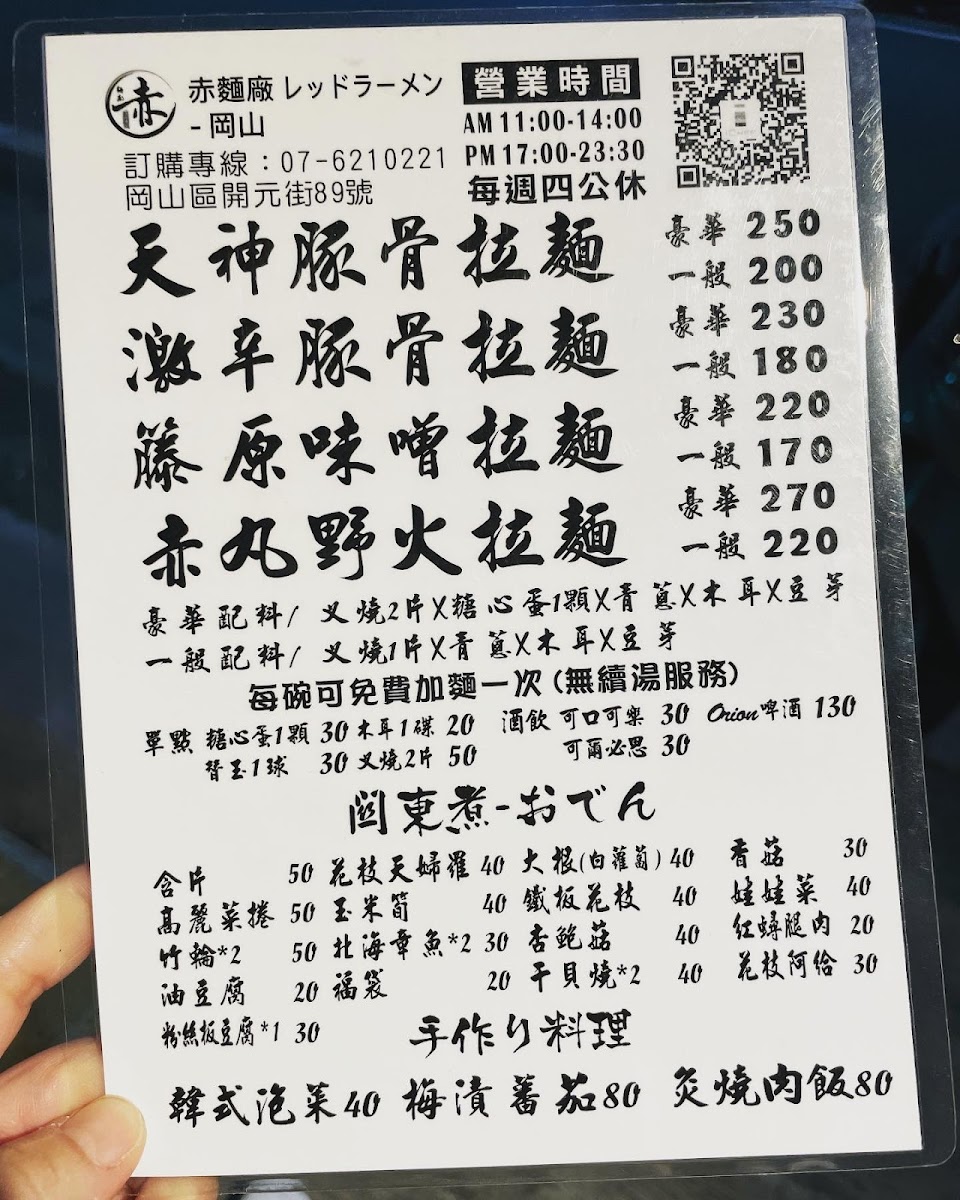 赤麵廠 レッドラーメン
-岡山
訂購專線：07-6210221
岡山區開元街89號
營業時間
AM 11:00-14:00
PM 17:00-23:30
每週四公休
赤
天神豚骨拉麵 豪華 250
一般 200
激辛豚骨拉麵 豪華 230
一般 180
藤原味噌拉麵 豪華 220
一般 170
赤丸野火拉麵 豪華 270
一般 220
豪華配料/ 叉燒2片X糖心蛋1顆X青蔥X木耳X豆芽
一般配料/ 叉燒1片X青蔥X木耳X豆芽
每碗可免費加麵一次(無續湯服務)
單點 糖心蛋1顆 30 木耳1碟 20 酒飲 可口可樂 30 Orion啤酒 130
替玉1球 30 叉燒2片 50 可爾必思 30
關東煮-おでん
含片 50 花枝天婦羅 40 大根(白蘿蔔) 40 香菇 30
高麗菜捲 50 玉米筍 40 鐵板花枝 40 娃娃菜 40
竹輪*2 50 北海章魚*2 30 杏鮑菇 40 紅蟳腿肉 20
油豆腐 20 福袋 20 干貝燒*2 40 花枝阿給 30
粉絲板豆腐*1 30
手作り料理
韓式泡菜40 梅漬蕃茄80 炙燒肉飯80